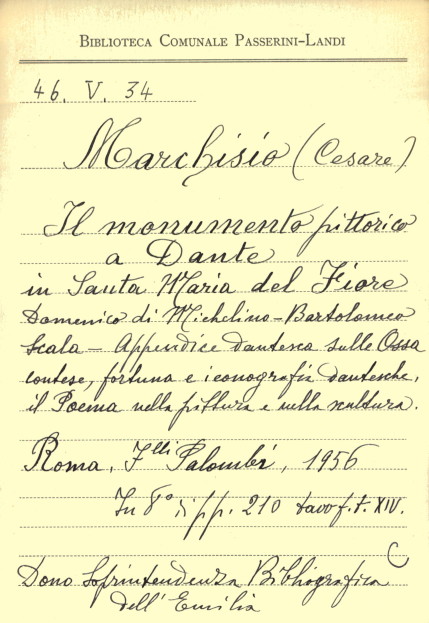 BIBLIOTECA COMUNALE PASSERINI-LANDI
46. V. 34
Marchisio (Cesare)
Il monumento pittorico
a Dante
in Santa Maria del Fiore
Domenico di Michelino - Bartolomeo
Scala - Appendice dantesca sulle Ossa
contese, fortuna e iconografia dantesche,
il Poema nella pittura e nella scultura.
Roma, F.lli Palombi, 1956
In 8° di pp. 210 tavo f.t. XIV.
C
Dono Soprintendenza Bibliografica
dell'Emilia